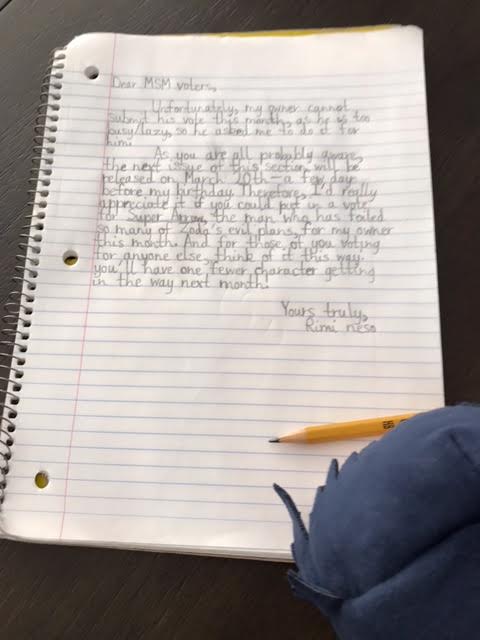 Dear MSM voters,
Unfortunately, my owner cannot
submit his vote this month, as he is too
busy/lazy, so he asked me to do it for
himi
As you are all probably aware,
the next issue of this section will be
released on March 10th - a few days
before my birthday. Therefore, I'd really
appreciate it if you could put in a vote
for Super Arrow, the man who has foiled
so many of Zoda's evil plans, for my owner
this month. And for those of you voting
for anyone else, think of it this way:
you'll have one fewer character getting
in the way next month.
Yours truly,
Rimi neso
HB